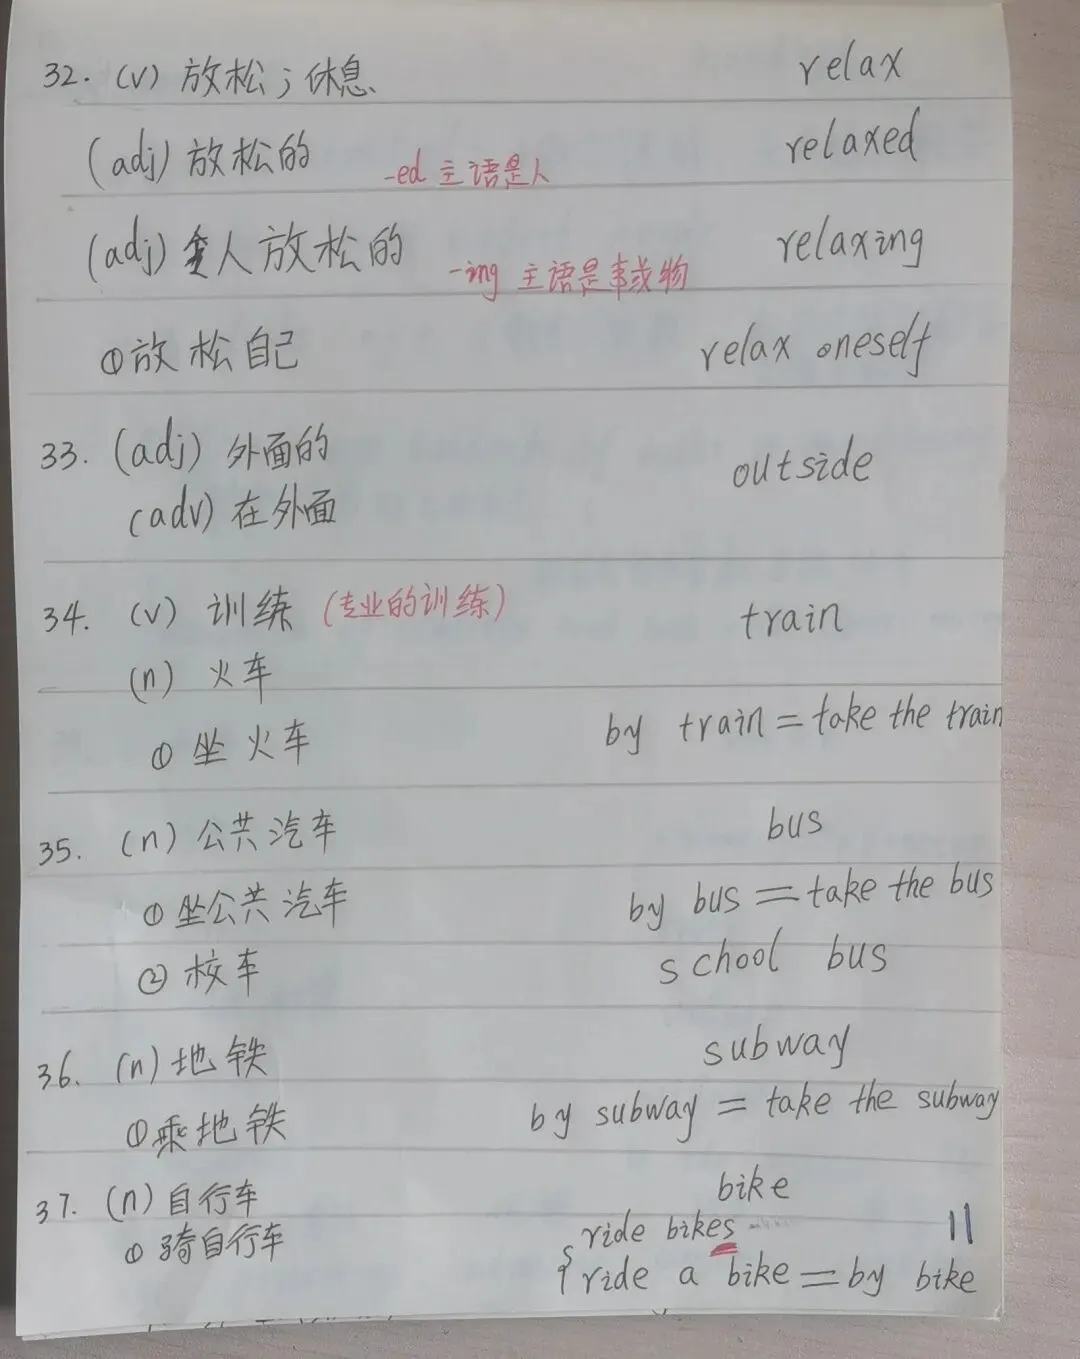 32. (v) 放松；休息 relax
(adj) 放松的 -ed 主语是人 relaxed
(adj) 令人放松的 -ing 主语是事或物 relaxing
①放松自己 relax oneself
33. (adj) 外面的 outside
(adv) 在外面
34. (v) 训练 (专业的训练) train
(n) 火车
① 坐火车 by train = take the train
35. (n) 公共汽车 bus
① 坐公共汽车 by bus = take the bus
② 校车 school bus
36. (n) 地铁 subway
①乘地铁 by subway = take the subway
37. (n) 自行车 bike
① 骑自行车 ride bikes
ride a bike = by bike
11